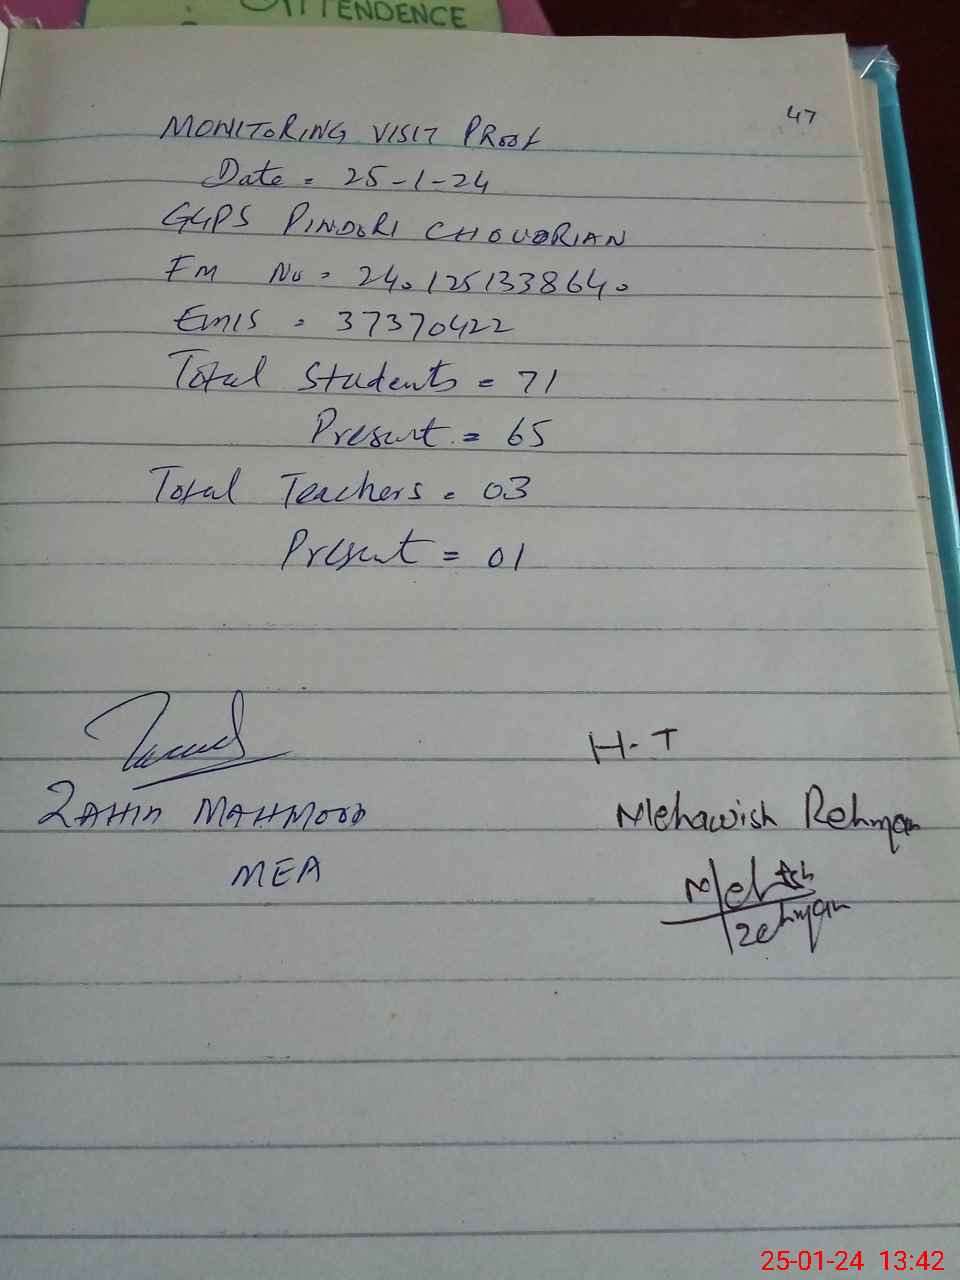 ATTENDENCE
47
MONITORING VISIT PROOF
Date = 25-1-24
GGPS PINDORI CHOUDRIAN
FM No = 24.125133864.
EMIS = 37370422
Total Students = 71
Present = 65
Total Teachers = 03
Present = 01
H.T
ZAHID MAHMOOD
Mehawish Rehman
MEA
25-01-24 13:42